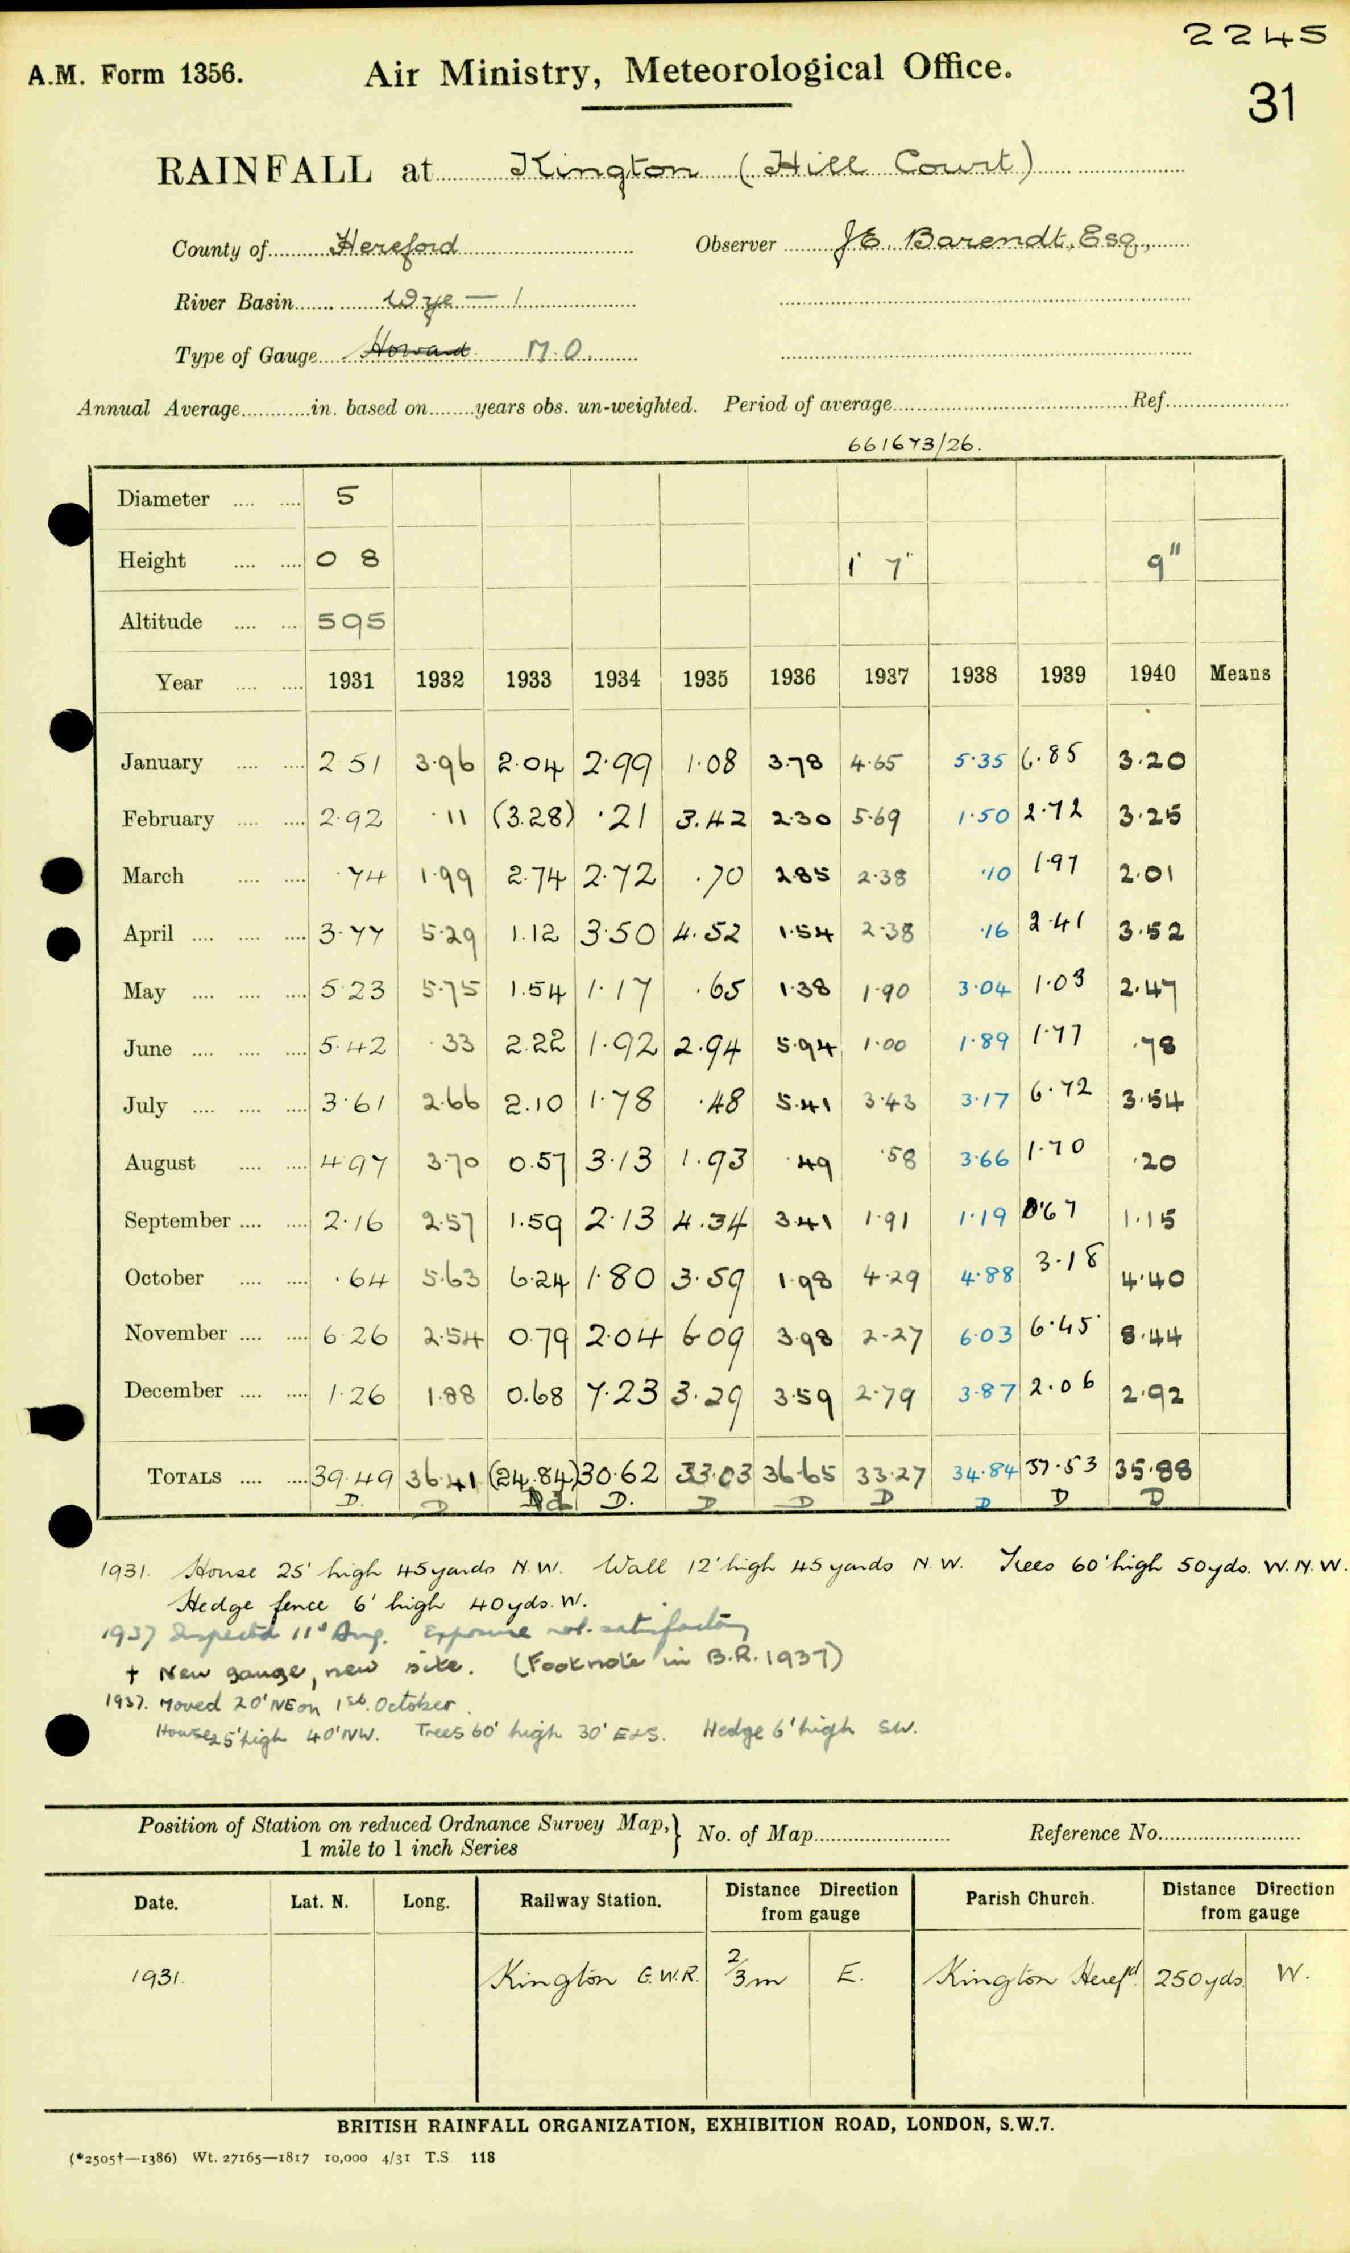 2245
A.M. Form 1356. Air Ministry, Meteorological Office.
31
RAINFALL at Kington (Hill Court)
County of Hereford Observer J E. Barendt, Esq.,
River Basin Wye — 1
Type of Gauge Howard M.O.
Annual Average in. based on years obs. un-weighted. Period of average Ref.
661673/26.
Diameter 5
Height 0 8 1' 7" 9"
Altitude 595
Year 1931 1932 1933 1934 1935 1936 1937 1938 1939 1940 Means
January 2.51 3.96 2.04 2.99 1.08 3.78 4.65 5.35 6.85 3.20
February 2.92 .11 (3.28) .21 3.42 2.30 5.69 1.50 2.72 3.25
March .74 1.99 2.74 2.72 .70 2.85 2.38 .10 1.97 2.01
April 3.77 5.29 1.12 3.50 4.52 1.54 2.38 .16 2.41 3.52
May 5.23 5.75 1.54 1.17 .65 1.38 1.90 3.04 1.03 2.47
June 5.42 .33 2.22 1.92 2.94 5.94 1.00 1.89 1.77 .78
July 3.61 2.66 2.10 1.78 .48 5.41 3.43 3.17 6.72 3.54
August 4.97 3.70 0.57 3.13 1.93 .49 .58 3.66 1.70 .20
September 2.16 2.57 1.59 2.13 4.34 3.41 1.91 1.19 0.67 1.15
October .64 5.63 6.24 1.80 3.59 1.98 4.29 4.88 3.18 4.40
November 6.26 2.54 0.79 2.04 6.09 3.98 2.27 6.03 6.45 8.44
December 1.26 1.88 0.68 7.23 3.29 3.59 2.79 3.87 2.06 2.92
TOTALS 39.49 36.41 (24.84) 30.62 33.03 36.65 33.27 34.84 37.53 35.88
D. D Dd D. D D D D D D
1931. House 25' high 45 yards N.W. Wall 12' high 45 yards N.W. Trees 60' high 50 yds. W.N.W.
Hedge fence 6' high 40 yds. W.
1937 Inspected 11th Aug. Exposure not satisfactory
† New gauge, new site. (Footnote in B.R. 1937)
1937. Moved 20' NE on 1st October.
House 25' high 40' NW. Trees 60' high 30' E & S. Hedge 6' high SW.
Position of Station on reduced Ordnance Survey Map, 1 mile to 1 inch Series } No. of Map Reference No.
Date. Lat. N. Long. Railway Station. Distance Direction from gauge Parish Church. Distance Direction from gauge
1931. Kington G.W.R. 2/3 m E. Kington Heref'd. 250 yds. W.
BRITISH RAINFALL ORGANIZATION, EXHIBITION ROAD, LONDON, S.W.7.
(*2505†—1386) Wt. 27165—1817 10,000 4/31 T.S. 118